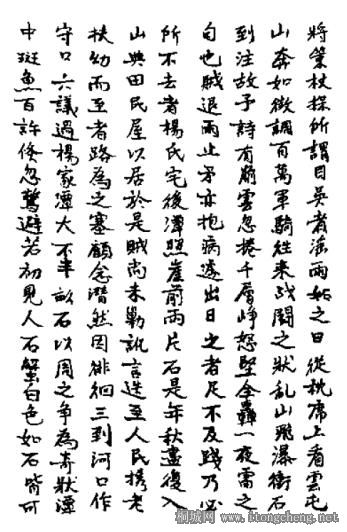 將策杖探所謂目者潘雨始之日從枕席上看雲屯
山奔如徵調百萬軍騎往来战闘之狀亂山飛瀑衝石
到注故予詩有崩雲忽捲千層崢怒壑全轟一夜雷之
句也賊退雨止亦抱病遽出日之者足不及踐乃必
所不去者楊氏宅後潭照崖前兩片石是年秋盡後入
山典田民屋以居於是賊尚未勦訛言迭至人民携老
扶幼而至者路為之塞顧念潸然因徘徊三到河口作
守口六議過楊家潭大不半畝石以周之争為奇狀潭
中斑魚百許倏忽驚避若初見人石蟹白色如石皆可
桐城网 www.itongcheng.net